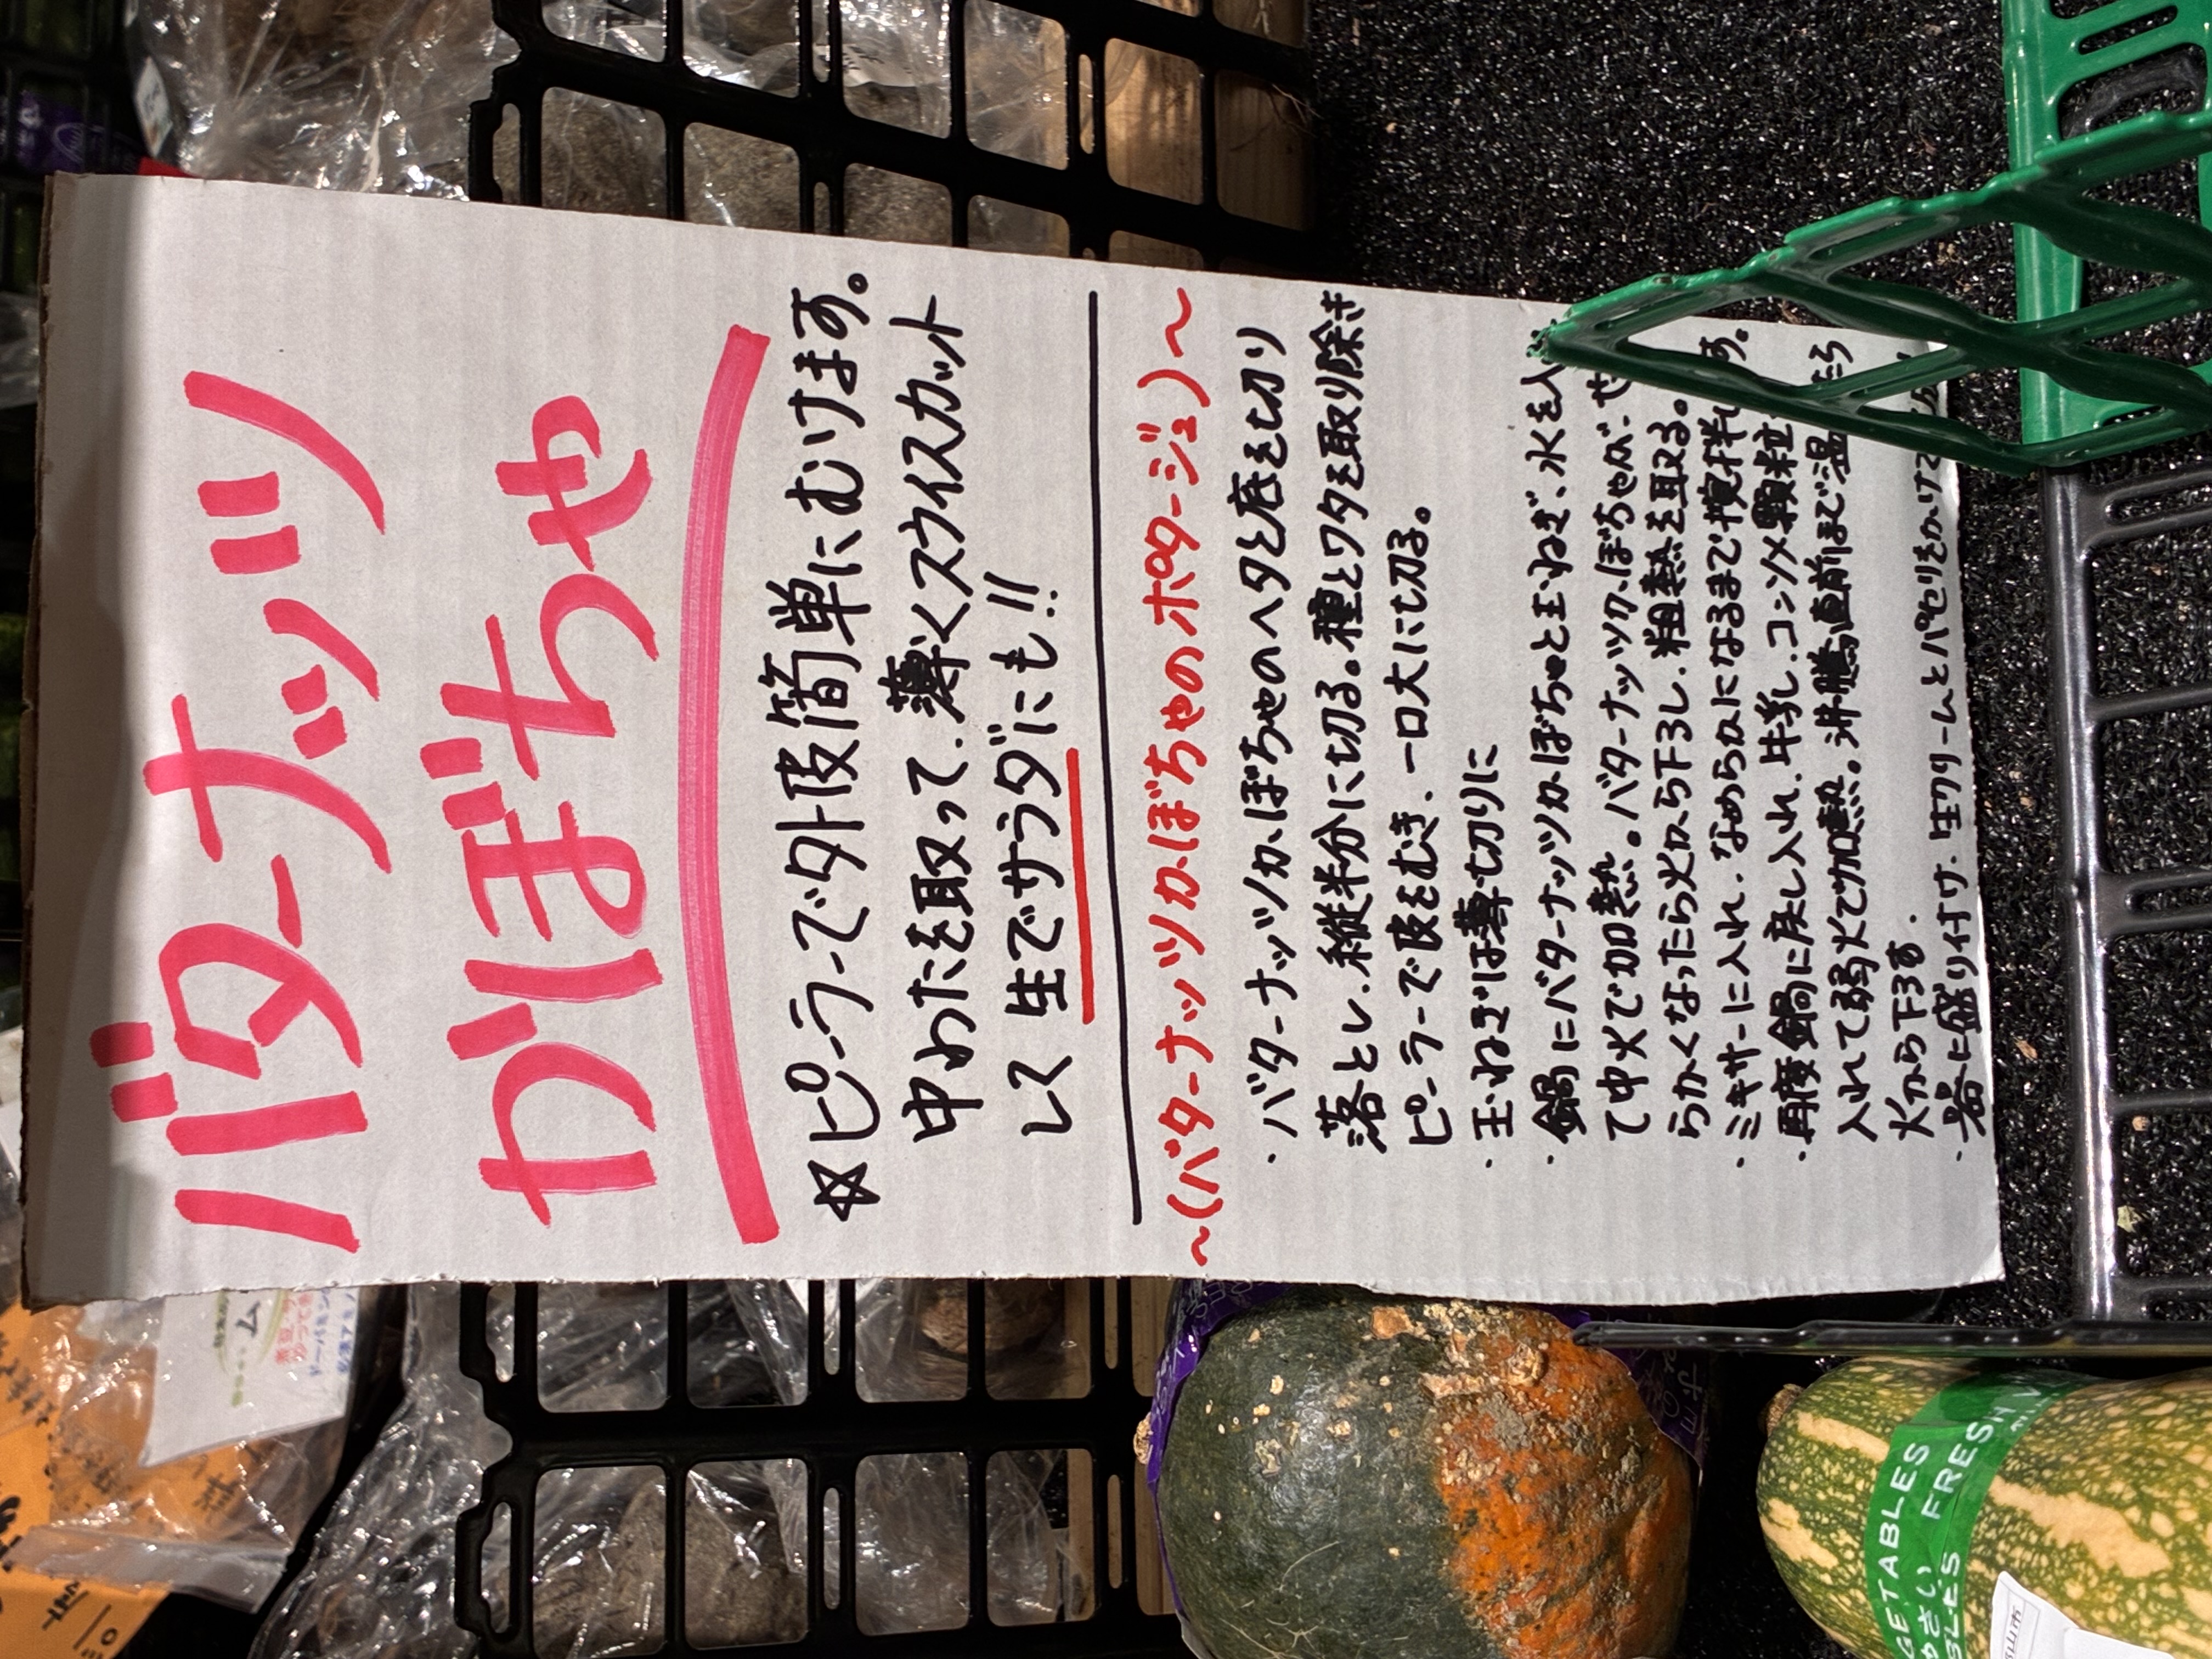 バターナッツ
かぼちゃ
☆ピーラーで外皮簡単にむけます。
中わたを取って、薄くスライスカット
して生でサラダにも!!
~(バターナッツかぼちゃのポタージュ)~
・バターナッツかぼちゃのヘタと底を切り
落とし、縦半分に切る。種とワタを取り除き
ピーラーで皮をむき、一口大に切る。
・玉ねぎは薄切りに
・鍋にバターナッツかぼちゃと玉ねぎ、水を入
て中火で加熱。バターナッツかぼちゃが
らかくなったら火から下ろし、粗熱を取る。
・ミキサーに入れ、なめらかになるまで撹拌
・再度鍋に戻し入れ、牛乳、コンソメ顆粒
入れて弱火で加熱。沸騰直前まで温
火から下ろす。
・器に盛り付け、生クリームとパセリをかけて
VEGETABLES
FRESH
やさい